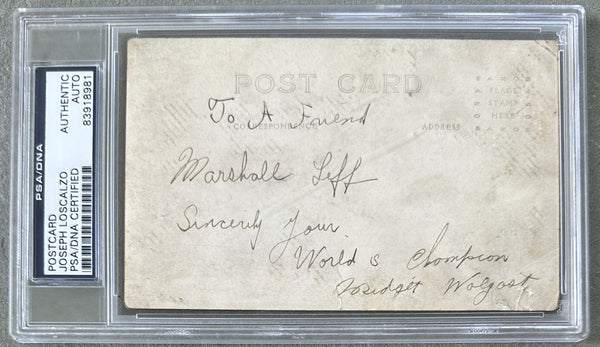 PSA/DNA
POSTCARD
JOSEPH LOSCALZO
PSA/DNA CERTIFIED
AUTHENTIC
AUTO
83918981
POST CARD
CORRESPONDENCE
ADDRESS
PLACE
STAMP
HERE
To A Friend
Marshall Leff
Sincerly Your
World s Champion
Midget Wolgast